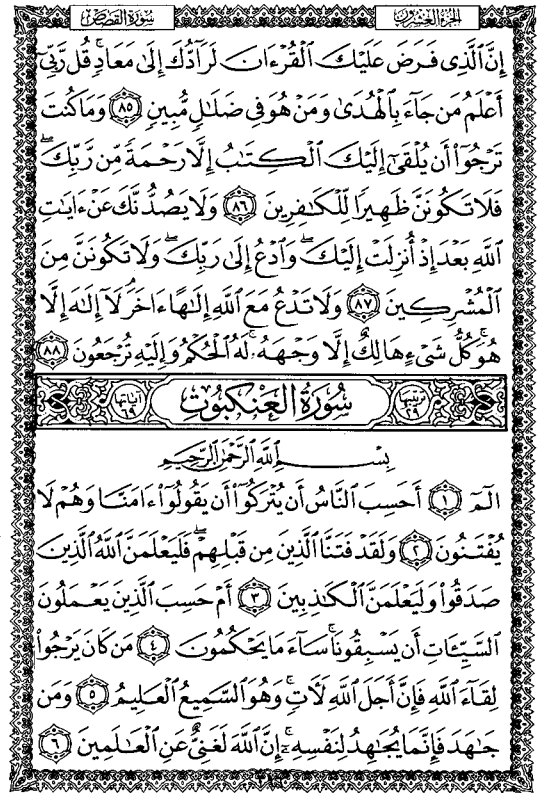 سُورَةُ القَصَصِ الجُزءُ العِشرُونَ
إِنَّ ٱلَّذِى فَرَضَ عَلَيْكَ ٱلْقُرْءَانَ لَرَآدُّكَ إِلَىٰ مَعَادٍ ۚ قُل رَّبِّىٓ
أَعْلَمُ مَن جَآءَ بِٱلْهُدَىٰ وَمَنْ هُوَ فِى ضَلَـٰلٍ مُّبِينٍ ٨٥ وَمَا كُنتَ
تَرْجُوٓا۟ أَن يُلْقَىٰٓ إِلَيْكَ ٱلْكِتَـٰبُ إِلَّا رَحْمَةً مِّن رَّبِّكَ ۖ
فَلَا تَكُونَنَّ ظَهِيرًا لِّلْكَـٰفِرِينَ ٨٦ وَلَا يَصُدُّنَّكَ عَنْ ءَايَـٰتِ
ٱللَّهِ بَعْدَ إِذْ أُنزِلَتْ إِلَيْكَ ۖ وَٱدْعُ إِلَىٰ رَبِّكَ ۖ وَلَا تَكُونَنَّ مِنَ
ٱلْمُشْرِكِينَ ٨٧ وَلَا تَدْعُ مَعَ ٱللَّهِ إِلَـٰهًا ءَاخَرَ ۘ لَآ إِلَـٰهَ إِلَّا
هُوَ ۚ كُلُّ شَىْءٍ هَالِكٌ إِلَّا وَجْهَهُۥ ۚ لَهُ ٱلْحُكْمُ وَإِلَيْهِ تُرْجَعُونَ ٨٨
ترتيبها ٢٩ سُورَةُ العَنكَبُوتِ آياتها ٦٩
بِسْمِ ٱللَّهِ ٱلرَّحْمَـٰنِ ٱلرَّحِيمِ
الٓمٓ ١ أَحَسِبَ ٱلنَّاسُ أَن يُتْرَكُوٓا۟ أَن يَقُولُوٓا۟ ءَامَنَّا وَهُمْ لَا
يُفْتَنُونَ ٢ وَلَقَدْ فَتَنَّا ٱلَّذِينَ مِن قَبْلِهِمْ ۖ فَلَيَعْلَمَنَّ ٱللَّهُ ٱلَّذِينَ
صَدَقُوا۟ وَلَيَعْلَمَنَّ ٱلْكَـٰذِبِينَ ٣ أَمْ حَسِبَ ٱلَّذِينَ يَعْمَلُونَ
ٱلسَّيِّـَٔاتِ أَن يَسْبِقُونَا ۚ سَآءَ مَا يَحْكُمُونَ ٤ مَن كَانَ يَرْجُوا۟
لِقَآءَ ٱللَّهِ فَإِنَّ أَجَلَ ٱللَّهِ لَـَٔاتٍ ۚ وَهُوَ ٱلسَّمِيعُ ٱلْعَلِيمُ ٥ وَمَن
جَـٰهَدَ فَإِنَّمَا يُجَـٰهِدُ لِنَفْسِهِۦٓ ۚ إِنَّ ٱللَّهَ لَغَنِىٌّ عَنِ ٱلْعَـٰلَمِينَ ٦